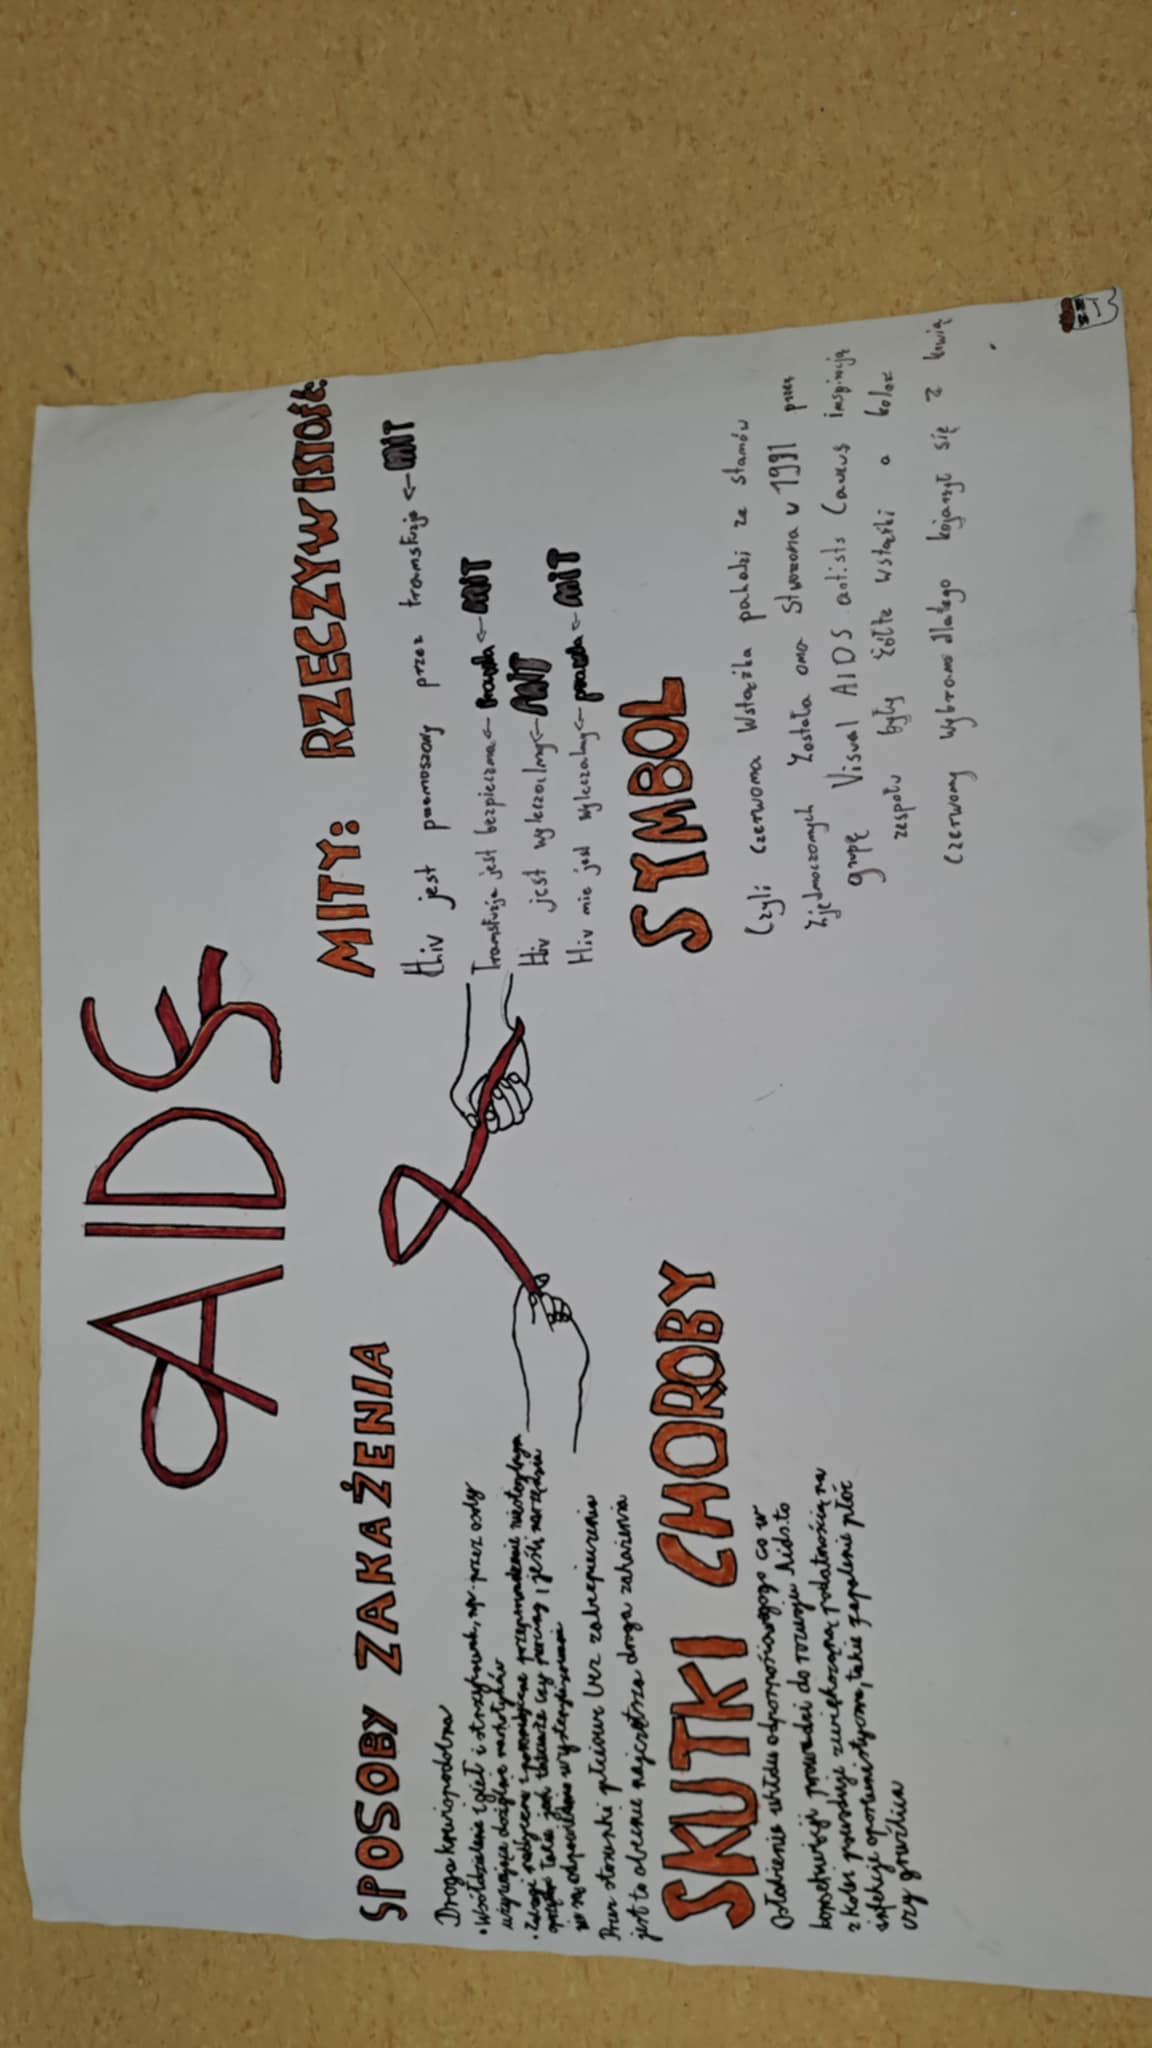 AIDS
SPOSOBY ZAKAŻENIA
Droga krwiopodobna
• Współdzielenie igieł i strzykawek, np. przez osoby
używające dożylnie narkotyków
• Zabiegi medyczne i pozamedyczne
takie jak tatuaże czy piercing, jeśli narzędzia
nie są odpowiednio wysterylizowane
Przez stosunki płciowe bez zabezpieczenia
jest to obecnie najczęstsza droga zakażenia
SKUTKI CHOROBY
Osłabienie układu odpornościowego co w
konsekwencji prowadzi do rozwoju Aids. to
z kolei powoduje zwiększoną podatnością na
infekcje oportunistyczne, takie zapalenie płóc
czy gruźlica
MITY: RZECZYWISTOŚĆ:
Hiv jest pzenoszony przez transfuzje <- MIT
Transfuzja jest bezpieczna <- Prawda <- MIT
Hiv jest wyleczalny <- MIT
Hiv nie jest wyleczalny <- prawda <- MIT
SYMBOL
Czyli czerwona wstążka pahodzi ze stanów
zjednoczonych została ona stworzona w 1991 przez
grupę Visual AIDS artists Caucus inspiracją
zespołu były żółte wstążki a kolor
czerwony wybrano dlatego kojarzył się z krwią